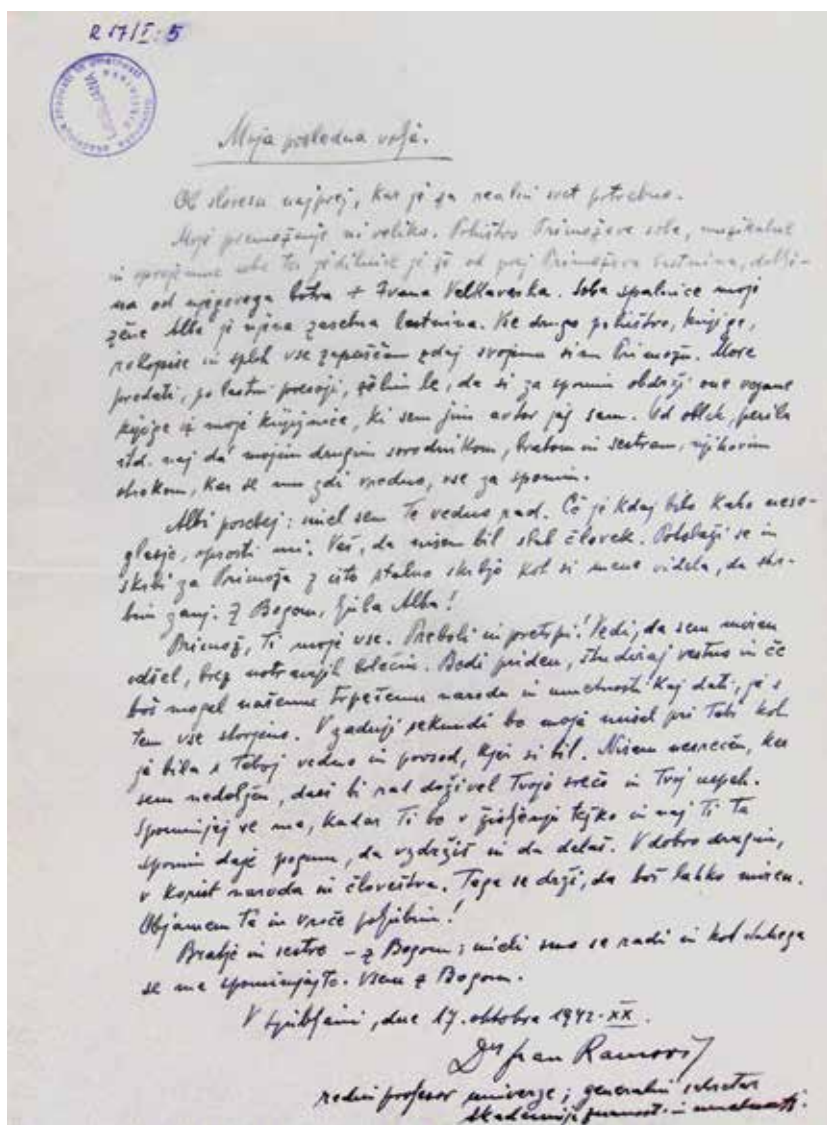 R 17/I: 5
Slovenska akademija znanosti in umetnosti
LJUBLJANA
Moja poslednja volja.
Ob slovesu najprej, kar je za realni svet potrebno.
Moje premoženje ni veliko. Pohištvo Primoževe sobe, muzikalne
in sprejemne sobe ter jedilnice je že od prej Primoževa lastnina, doblje-
na od njegovega botra + Ivana Velkaverha. Soba spalnice moje
žene Albe je njena zasebna lastnina. Vse drugo pohištvo, knjige,
rokopise in sploh vse zapuščam zdaj svojemu sinu Primožu. More
prodati, po lastni presoji, želim le, da si za spomin obdrži one vezane
knjige iz moje knjižnice, ki sem jim avtor jaz sam. Od oblek, perila
itd. naj da mojim drugim sorodnikom, bratom in sestram, njihovim
otrokom, kar se mu zdi vredno, vse za spomin.
Albi posebej: imel sem Te vedno rad. Če je kdaj bilo kako neso-
glasje, oprosti mi. Veš, da nisem bil slab človek. Potolaži se in
skrbi za Primoža z isto stalno skrbjo kot si mene videla, da skr-
bim zanj. Z Bogom, ljuba Alba!
Primož, Ti moje vse. Preboli in pretrpi! Vedi, da sem miren
odšel, brez notranjih bolečin. Bodi priden, študiraj vestno in če
boš mogel našemu trpečemu narodu in umetnosti kaj dati, je s
tem vse storjeno. V zadnji sekundi bo moja misel pri Tebi kot
je bila s Teboj vedno in povsod, kjer si bil. Nisem nesrečen, ker
sem nedolžen, dasi bi rad doživel Tvojo srečo in Tvoj uspeh.
Spominjaj se me, kadar Ti bo v življenju težko in naj Ti ta
spomin daje pogum, da vzdržiš in da delaš. V dobro drugim,
v korist naroda in človeštva. Tega se drži, da boš lahko miren.
Objamem Te in vroče poljubim!
Bratje in sestre – z Bogom; imeli smo se radi in kot takega
se me spominjajte. Vsem z Bogom.
V Ljubljani, dne 17. oktobra 1942-XX.
Dr Fran Ramovš
redni profesor univerze; generalni sekretar
Akademije znanosti in umetnosti.